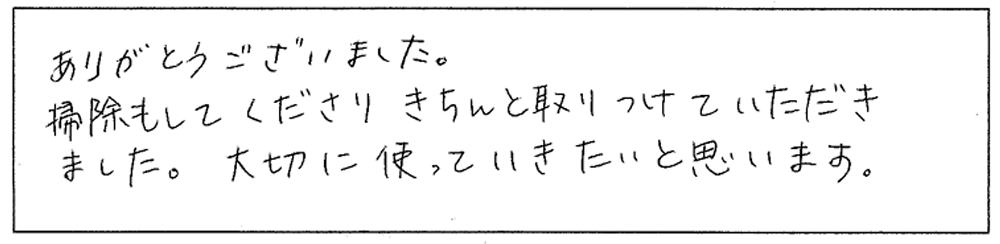 ありがとうございました。
掃除もしてくださり きちんと取りつけていただき
ました。 大切に使っていきたいと思います。